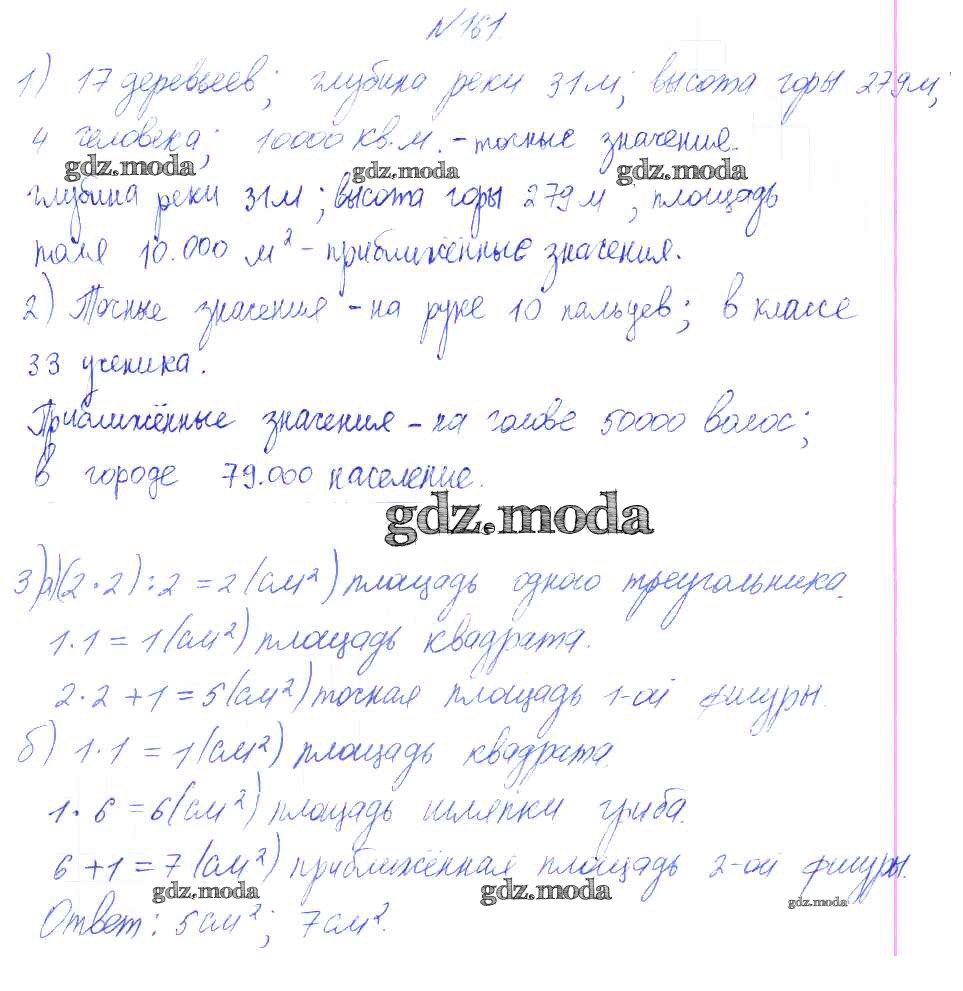 №161.
1) 17 деревьев; глубина реки 31м; высота горы 279м;
4 человека; 10000 кв.м. - точные значения.
gdz.moda gdz.moda gdz.moda
глубина реки 31м; высота горы 279м; площадь
поля 10.000 м² - приближённые значения.
2) Точные значения - на руке 10 пальцев; в классе
33 ученика.
Приближённые значения - на голове 50000 волос;
в городе 79.000 население.
gdz.moda
3)а)(2·2):2=2(см²) площадь одного треугольника.
1·1=1(см²) площадь квадрата.
2·2+1=5(см²) точная площадь 1-ой фигуры.
б) 1·1=1(см²) площадь квадрата.
1·6=6(см²) площадь шляпки гриба.
6+1=7(см²) приближённая площадь 2-ой фигуры.
gdz.moda gdz.moda gdz.moda
Ответ: 5см²; 7см².